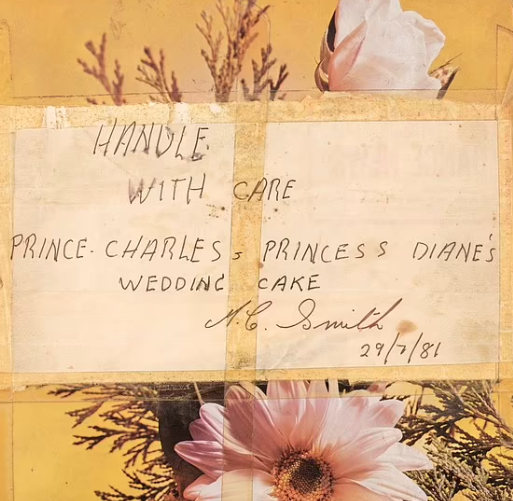 HANDLE
WITH CARE
PRINCE. CHARLES, PRINCESS DIANE'S
WEDDING CAKE
M.C. Smith
29/7/81